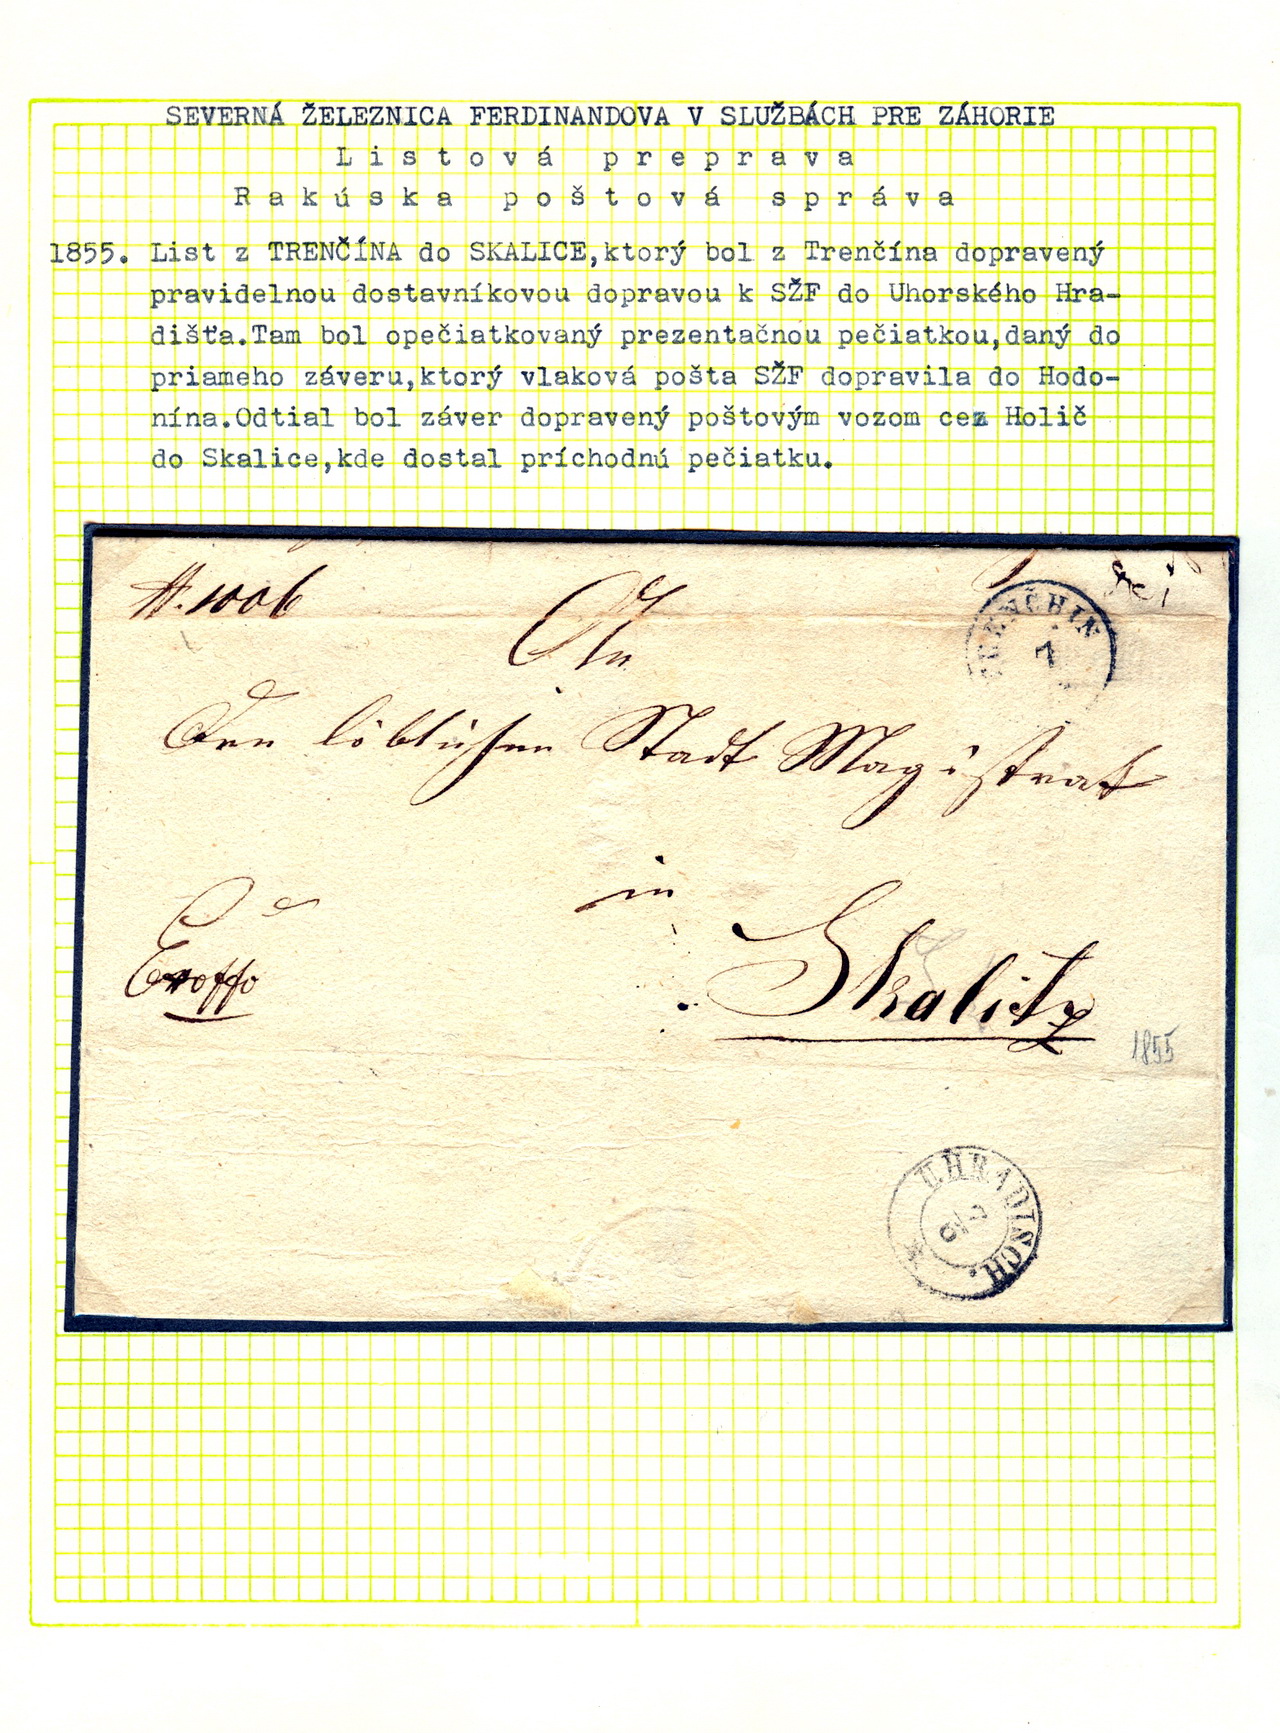 SEVERNÁ ŽELEZNICA FERDINANDOVA V SLUŽBÁCH PRE ZÁHORIE
Listová preprava
Rakúska poštová správa
1855. List z TRENČÍNA do SKALICE,ktorý bol z Trenčína dopravený
pravidelnou dostavníkovou dopravou k SŽF do Uhorského Hra-
dišťa.Tam bol opečiatkovaný prezentačnou pečiatkou,daný do
priameho záveru,ktorý vlaková pošta SŽF dopravila do Hodo-
nína.Odtial bol záver dopravený poštovým vozom cez Holič
do Skalice,kde dostal príchodnú pečiatku.
N. 1006
An
TRENČHIN
7
Den löblichen Stadt Magistrat
in
Exoffo
Skalitz
1855
U.HRADISCH.